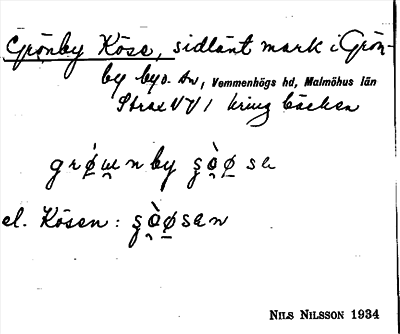 Grönby Köse, sidlänt mark i Grön-
by by o. sn, Vemmenhögs hd, Malmöhus län
Strax VV / kring bäcken
grø̀ɯnby ʂò̯ø̱sa
el. Kösen: ʂò̯ø̱san
NILS NILSSON 1934